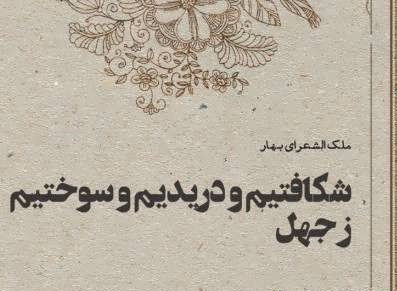 ملک الشعرای بهار
شکافتیم و دریدیم و سوختیم
ز جهل